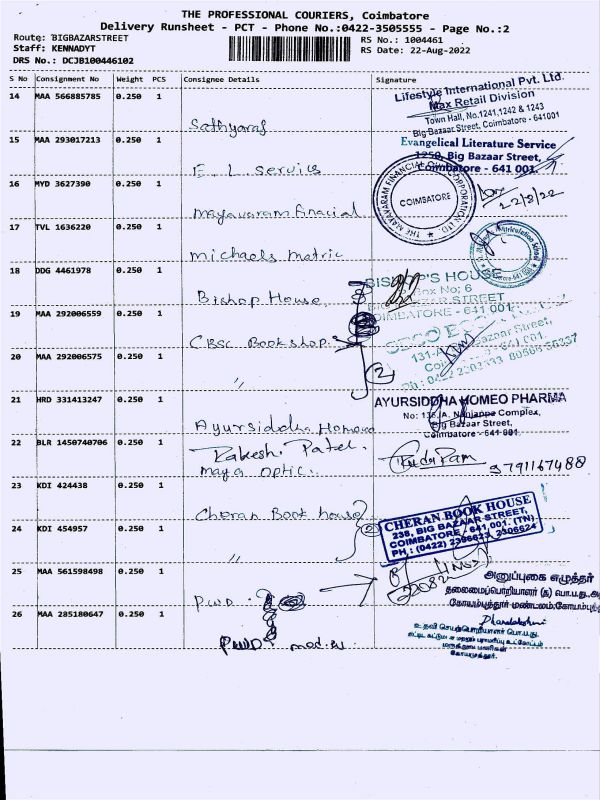 THE PROFESSIONAL COURIERS, Coimbatore
Delivery Runsheet - PCT - Phone No.:0422-3505555 - Page No.:2
Route: BIGBAZARSTREET
RS No.: 1004461
Staff: KENNADYT
RS Date: 22-Aug-2022
DRS No.: DCJB100446102
S No Consignment No Weight PCS Consignee Details Signature
14 MAA 566885785 0.250 1
Sathyaraj
Lifestyle International Pvt. Ltd.
Max Retail Division
Town Hall, No.1241,1242 & 1243
Big Bazaar Street, Coimbatore - 641001
15 MAA 293017213 0.250 1
E. L. Servics
Evangelical Literature Service
1250, Big Bazaar Street,
Coimbatore - 641 001.
16 MYD 3627390 0.250 1
mayavaram finacial
COIMBATORE
22/8/22
17 TVL 1636220 0.250 1
michaels matric
18 DDG 4461978 0.250 1
Bishop House
BISHOP'S HOUSE
Box No: 6
BAZAAR STREET
COIMBATORE - 641 001
19 MAA 292006559 0.250 1
CBSC Bookshop
20 MAA 292006575 0.250 1
"
2
21 HRD 331413247 0.250 1
Ayursiddha Homoeo
AYURSIDDHA HOMEO PHARMA
Complex,
Big Bazaar Street,
Coimbatore - 641 001.
22 BLR 1450740706 0.250 1
Rakesh Patel
maya optic.
9791167488
23 KDI 424438 0.250 1
Cheran Book house
CHERAN BOOK HOUSE
238, BIG BAZAAR STREET,
COIMBATORE - 641 001. (TN)
PH.: (0422) 2396623, 2396624
24 KDI 454957 0.250 1
"
2
25 MAA 561598498 0.250 1
PWD
அனுப்புகை எழுத்தர்
தலைமைப்பொறியாளர் (த) பொ.ப.து.
கோயம்புத்தூர் மண்டலம்,
26 MAA 285180647 0.250 1
PWD med.
Dhanalakshmi